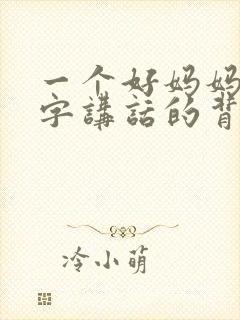 一个好妈妈
字講話的背
冷小萌